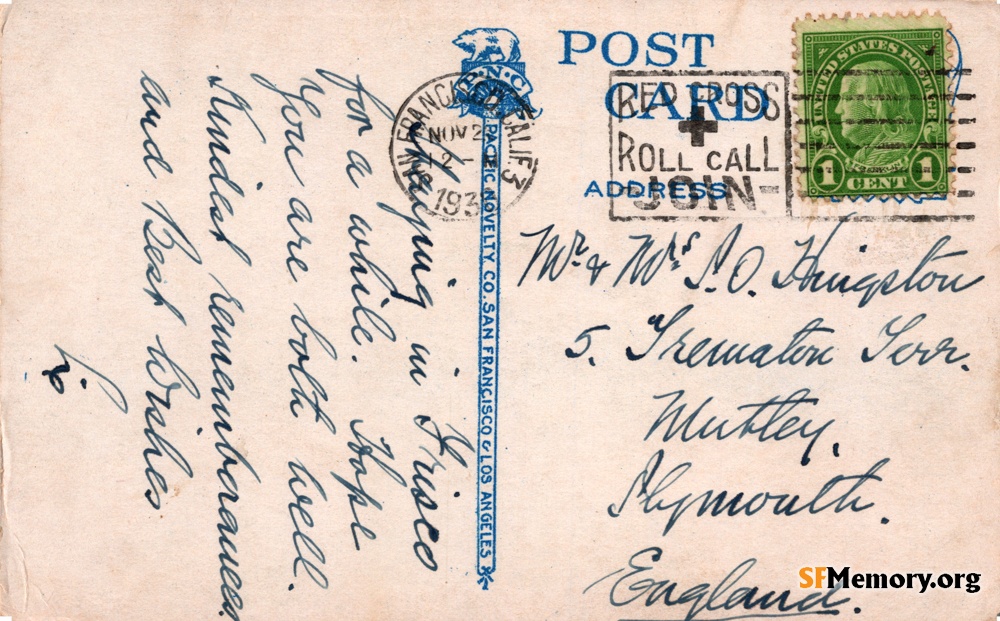 Staying in Frisco
for a while. Hope
you are both well.
Kindest remembrances
and Best Wishes
P·N·C
PACIFIC NOVELTY CO. SAN FRANCISCO & LOS ANGELES
POST
CARD
ADDRESS
SAN FRANCISCO, CALIF. 3
NOV 2
12 -
193
RED CROSS
ROLL CALL
JOIN
UNITED STATES POSTAGE
1 CENT 1
Mr. & Mrs S. O. Kingston
5. Trematon Terr.
Mutley,
Plymouth.
England.
SFMemory.org